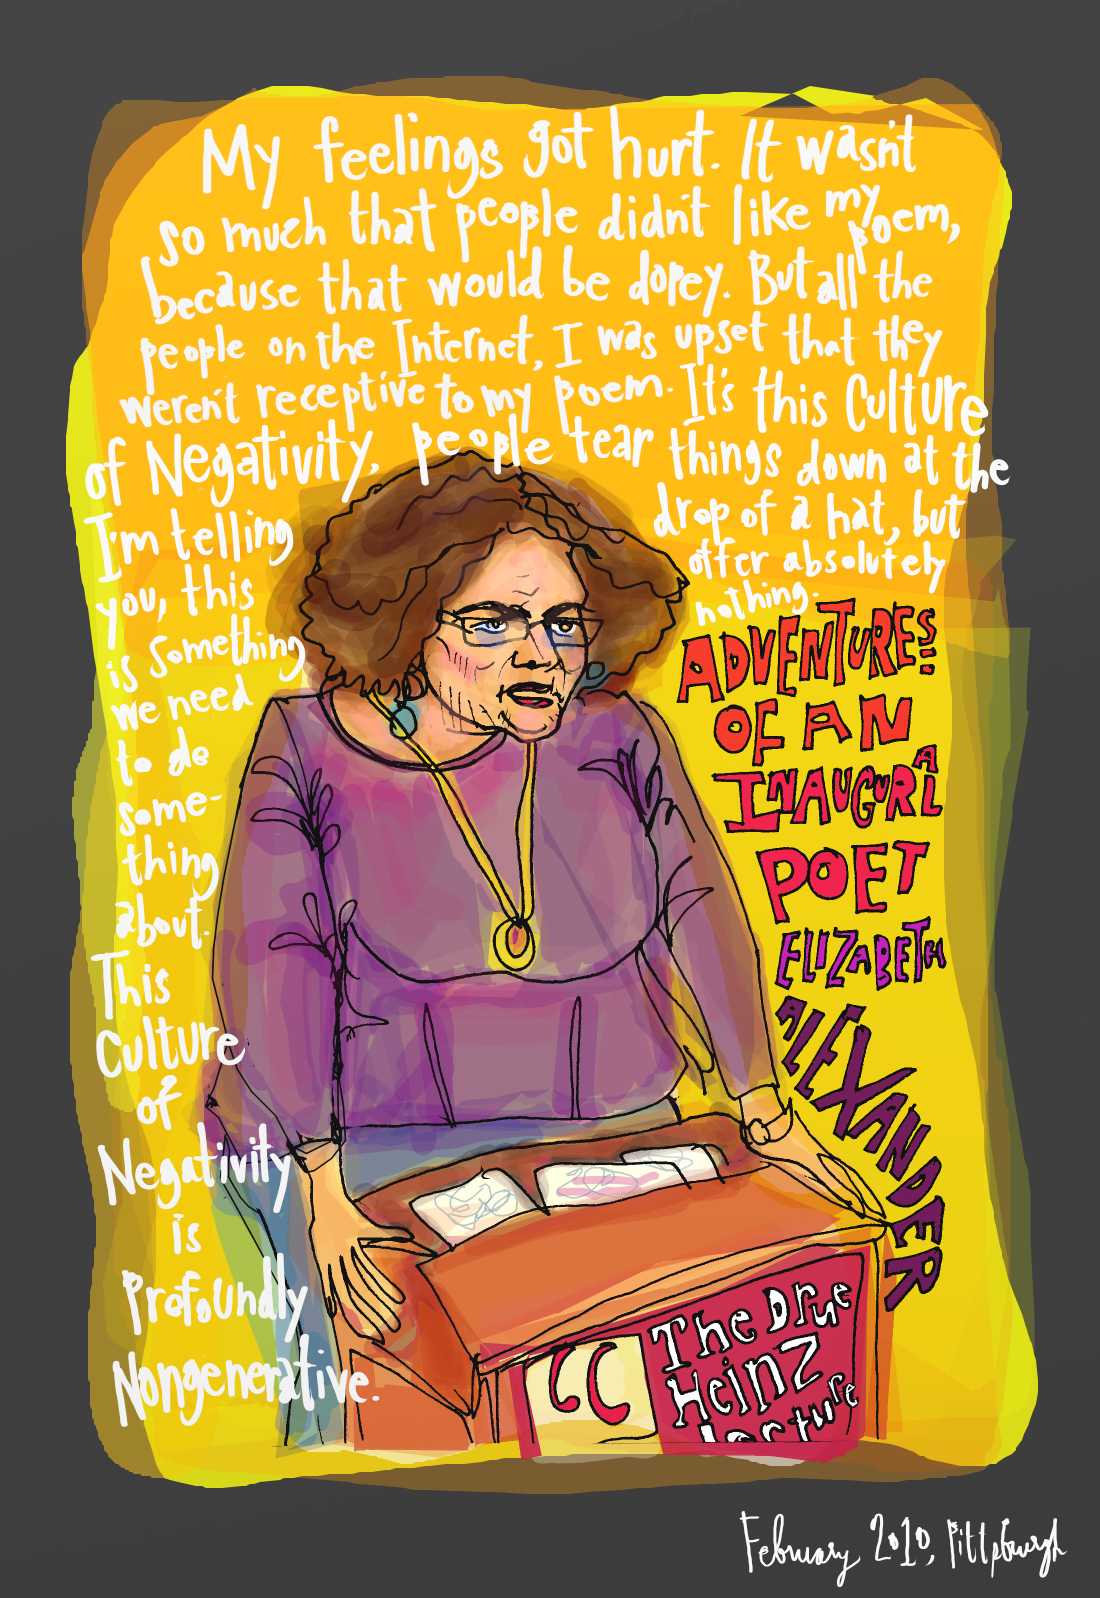 My feelings got hurt. It wasn't
so much that people didn't like my poem,
because that would be dopey. But all the
people on the Internet, I was upset that they
weren't receptive to my poem. It's this Culture
of Negativity, people tear things down at the
drop of a hat, but
offer absolutely
nothing.
I'm telling
you, this
is something
we need
to do
some-
thing
about.
This
Culture
of
Negativity
is
Profoundly
Nongenerative.
ADVENTURES
OF AN
INAUGURAL
POET
ELIZABETH
ALEXANDER
The Drue
Heinz
lecture
February 2010, Pittsburgh